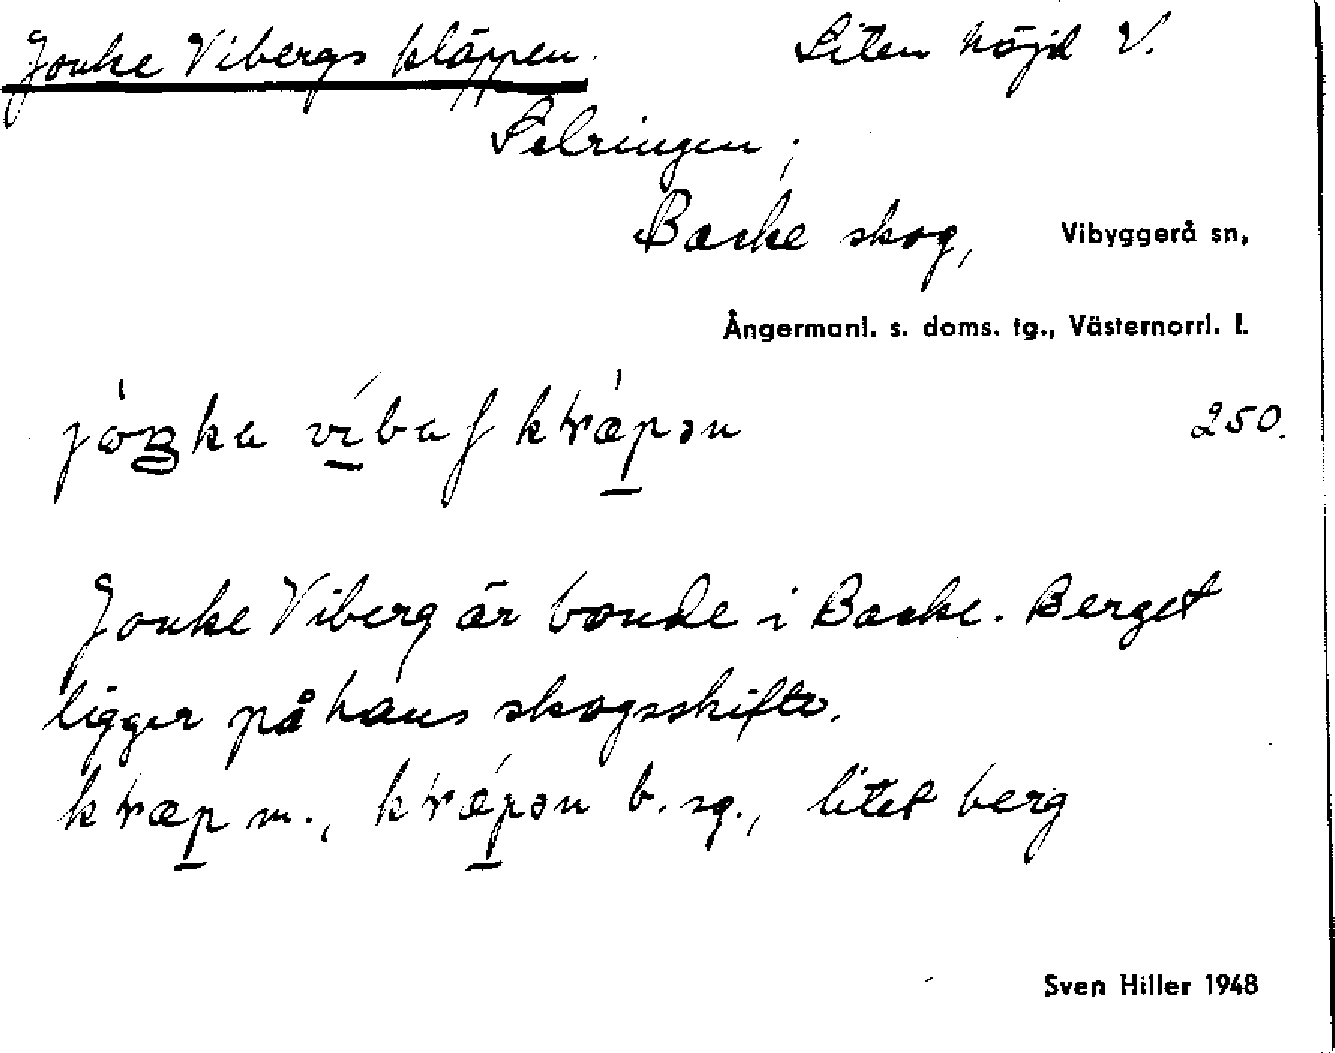 Jonke Vibergs kläppen. Liten höjd V.
Selringen;
Backe skog, Vibyggerå sn,
Ångermanl. s. doms. tg., Västernorrl. l.
250.
Jonke Viberg är bonde i Backe. Berget
ligger på hans skogsskifte.
m., b. sg., litet berg
Sven Hiller 1948